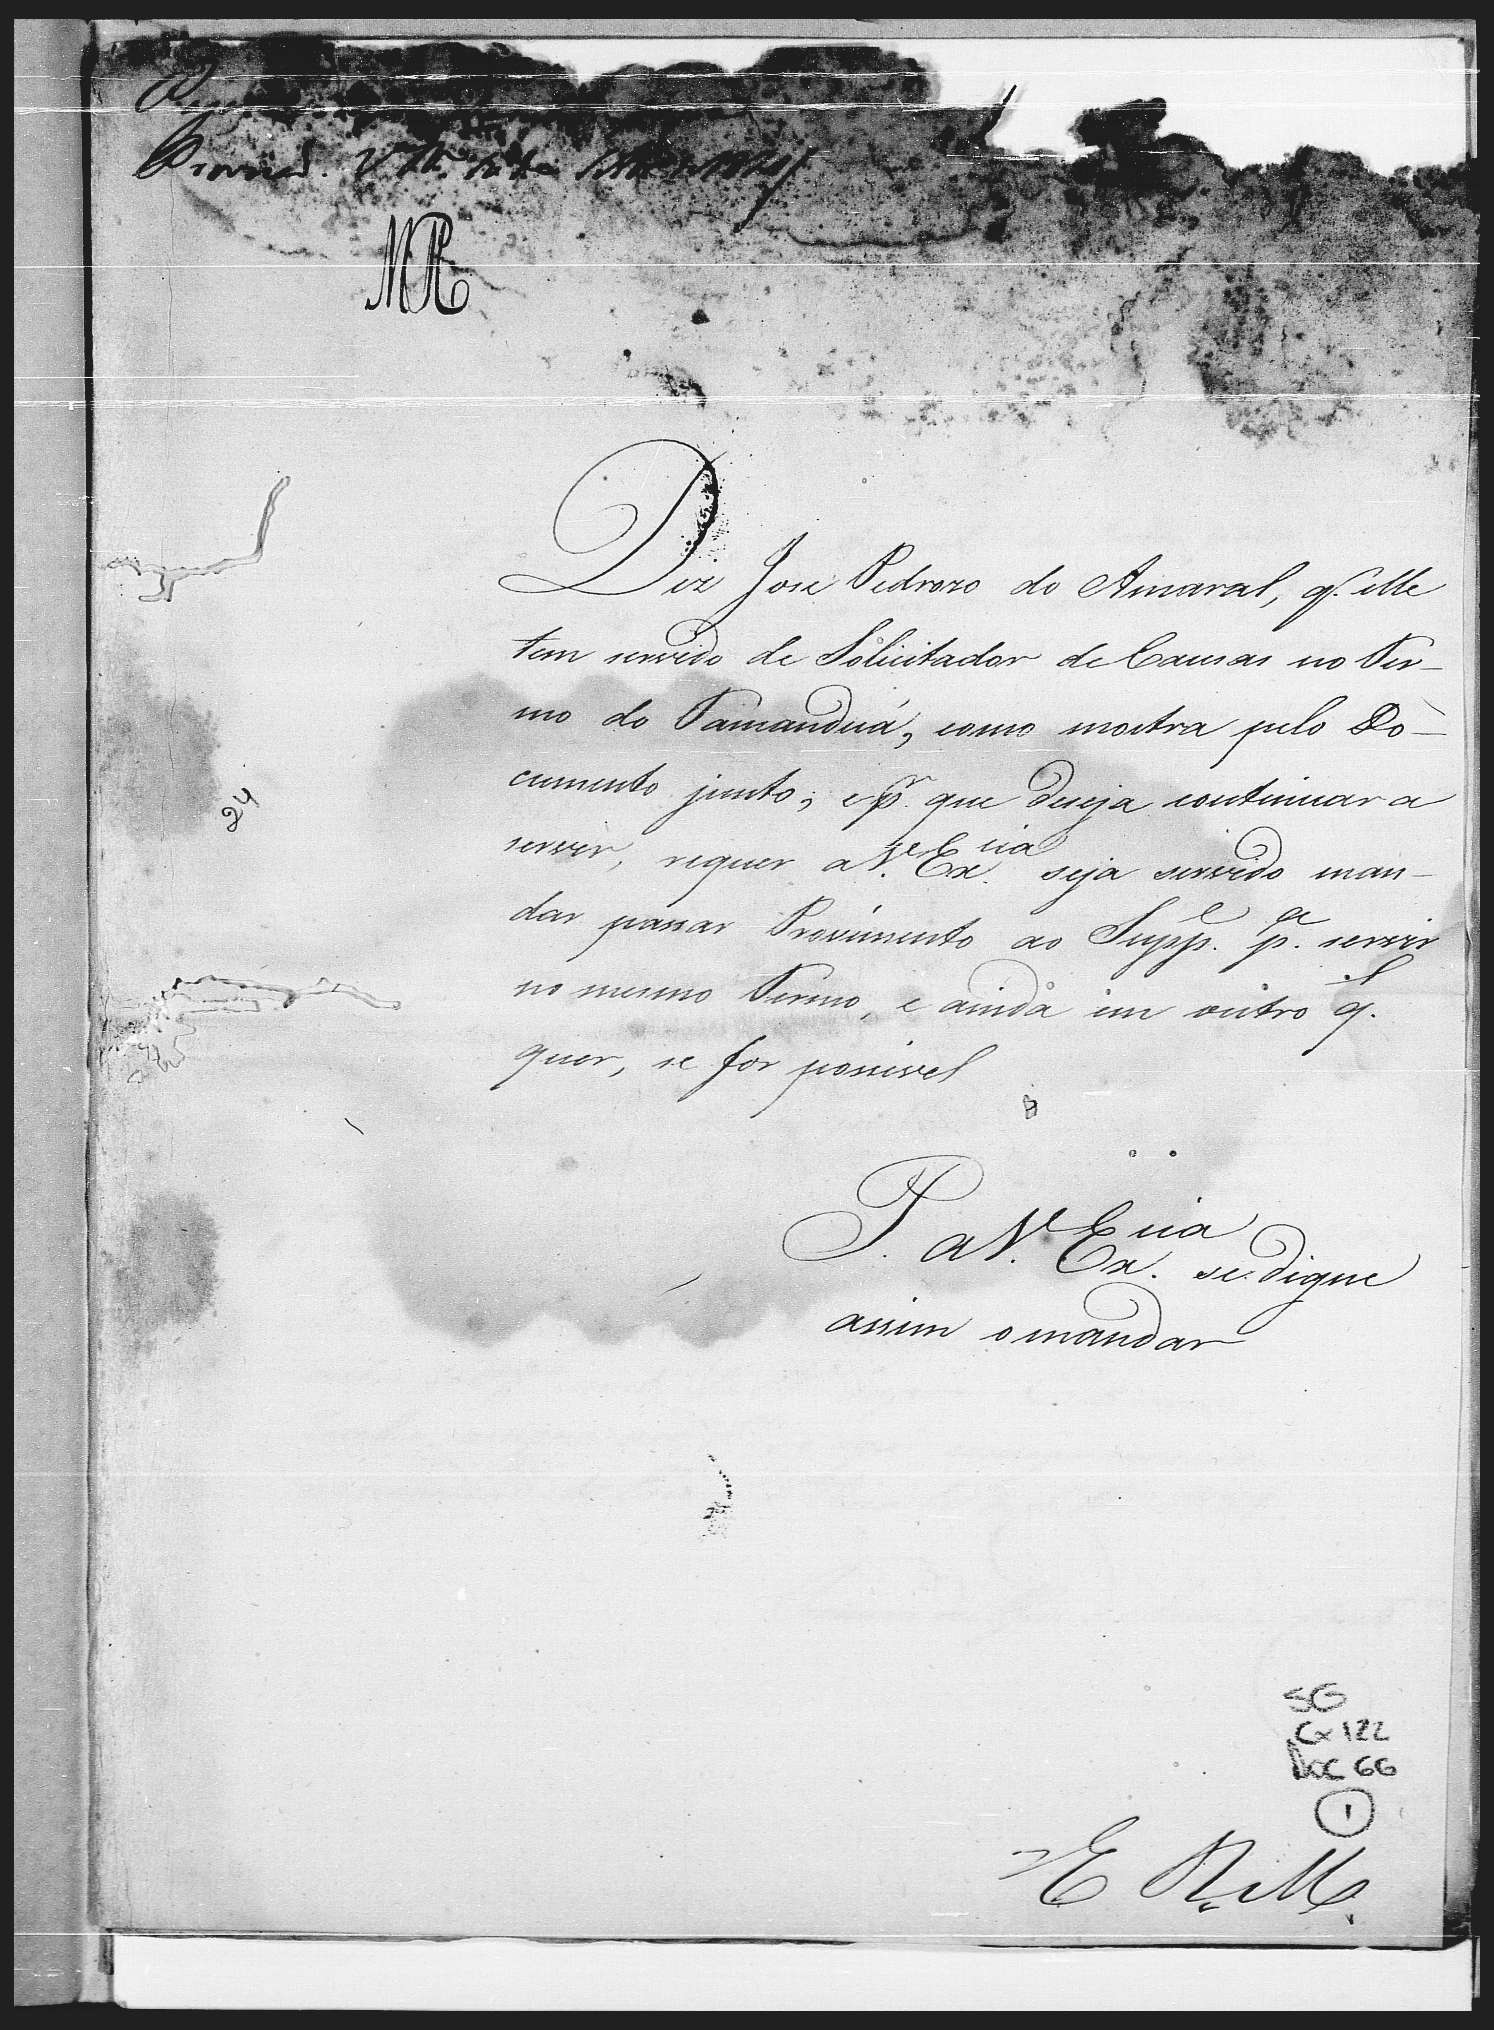 Diz Jose Pedrozo do Amaral, q. elle
tem servido de Solicitador de Causas no Ter-
mo do Tamanduá, como mostra pelo Do-
cumento junto, e pr. que deseja continuar a
servir, requer a V.e Ex.cia seja servido man-
dar passar Provimento ao Supp.e p.a servir
no mesmo Termo, e ainda em outro q.l
quer, se for possivel
P. a V.e Ex.cia se digne
assim o mandar
24
SG
Cx 122
Doc 66
1
E R. M.